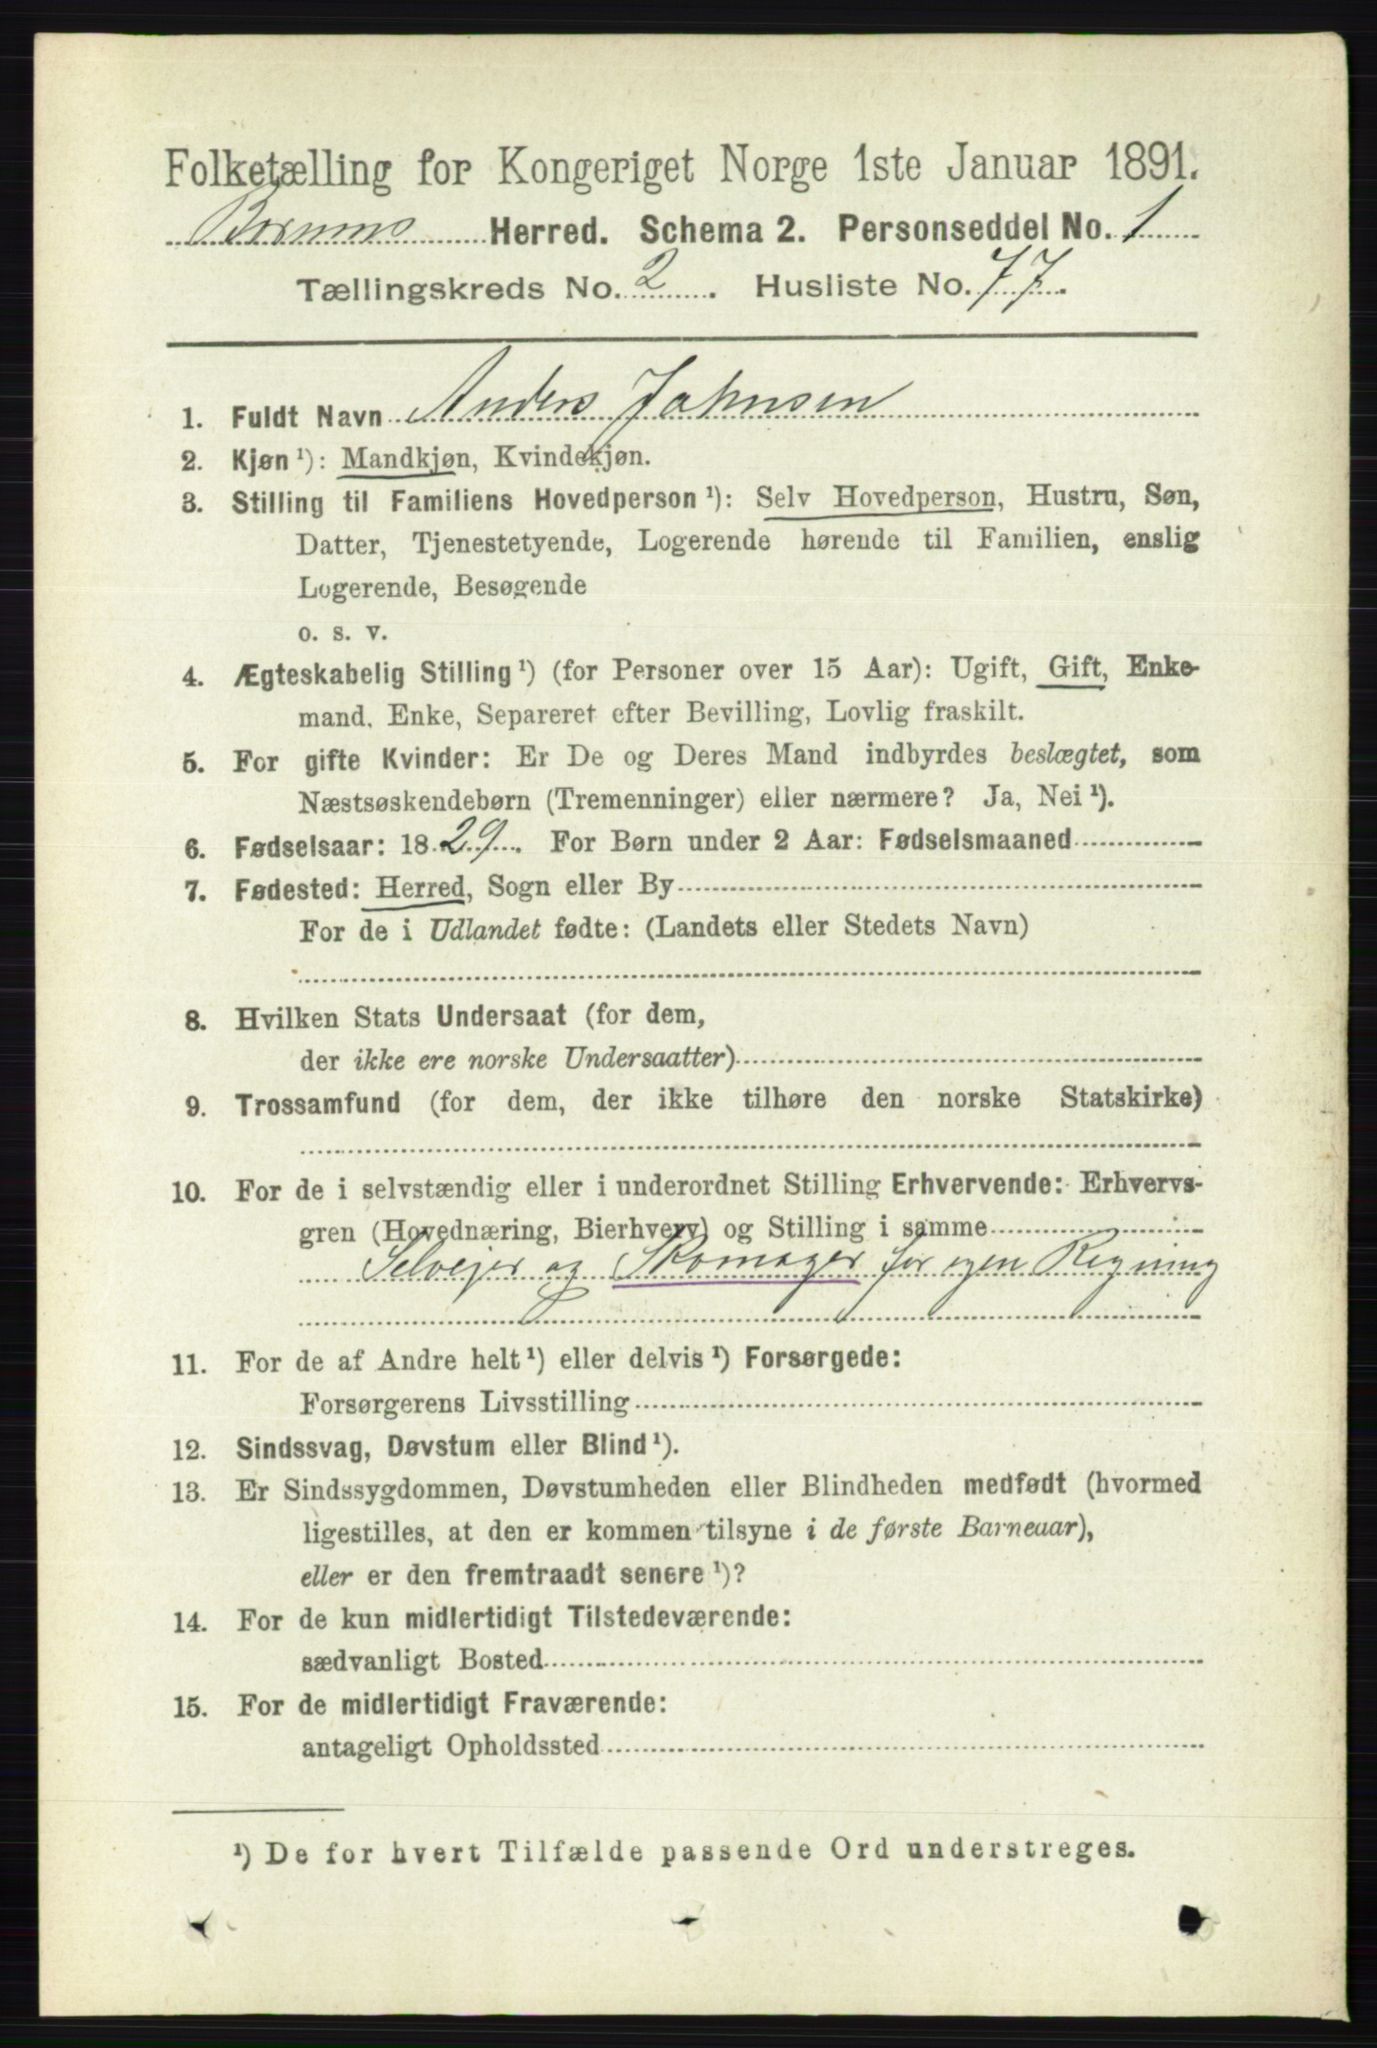 Folketælling for Kongeriget Norge 1ste Januar 1891.
Herred. Schema 2. Personseddel No. 1
Tællingskreds No. 2. Husliste No. 77.
1. Fuldt Navn Anders Johnsen
2. Kjøn ¹): Mandkjøn, Kvindekjøn.
3. Stilling til Familiens Hovedperson ¹): Selv Hovedperson, Hustru, Søn,
Datter, Tjenestetyende, Logerende hørende til Familien, enslig
Logerende, Besøgende
o. s. v.
4. Ægteskabelig Stilling ¹) (for Personer over 15 Aar): Ugift, Gift, Enke-
mand, Enke, Separeret efter Bevilling, Lovlig fraskilt.
5. For gifte Kvinder: Er De og Deres Mand indbyrdes beslægtet, som
Næstsøskendebørn (Tremenninger) eller nærmere? Ja, Nei ¹).
6. Fødselsaar: 1829. For Børn under 2 Aar: Fødselsmaaned
7. Fødested: Herred, Sogn eller By
For de i Udlandet fødte: (Landets eller Stedets Navn)
8. Hvilken Stats Undersaat (for dem,
der ikke ere norske Undersaatter)
9. Trossamfund (for dem, der ikke tilhøre den norske Statskirke)
10. For de i selvstændig eller i underordnet Stilling Erhvervende: Erhvervs-
gren (Hovednæring, Bierhverv) og Stilling i samme
Selvejer og Skomager for egen Regning
11. For de af Andre helt ¹) eller delvis ¹) Forsørgede:
Forsørgerens Livsstilling
12. Sindssvag, Døvstum eller Blind ¹).
13. Er Sindssygdommen, Døvstumheden eller Blindheden medfødt (hvormed
ligestilles, at den er kommen tilsyne i de første Barneaar),
eller er den fremtraadt senere ¹)?
14. For de kun midlertidigt Tilstedeværende:
sædvanligt Bosted
15. For de midlertidigt Fraværende:
antageligt Opholdssted
¹) De for hvert Tilfælde passende Ord understreges.